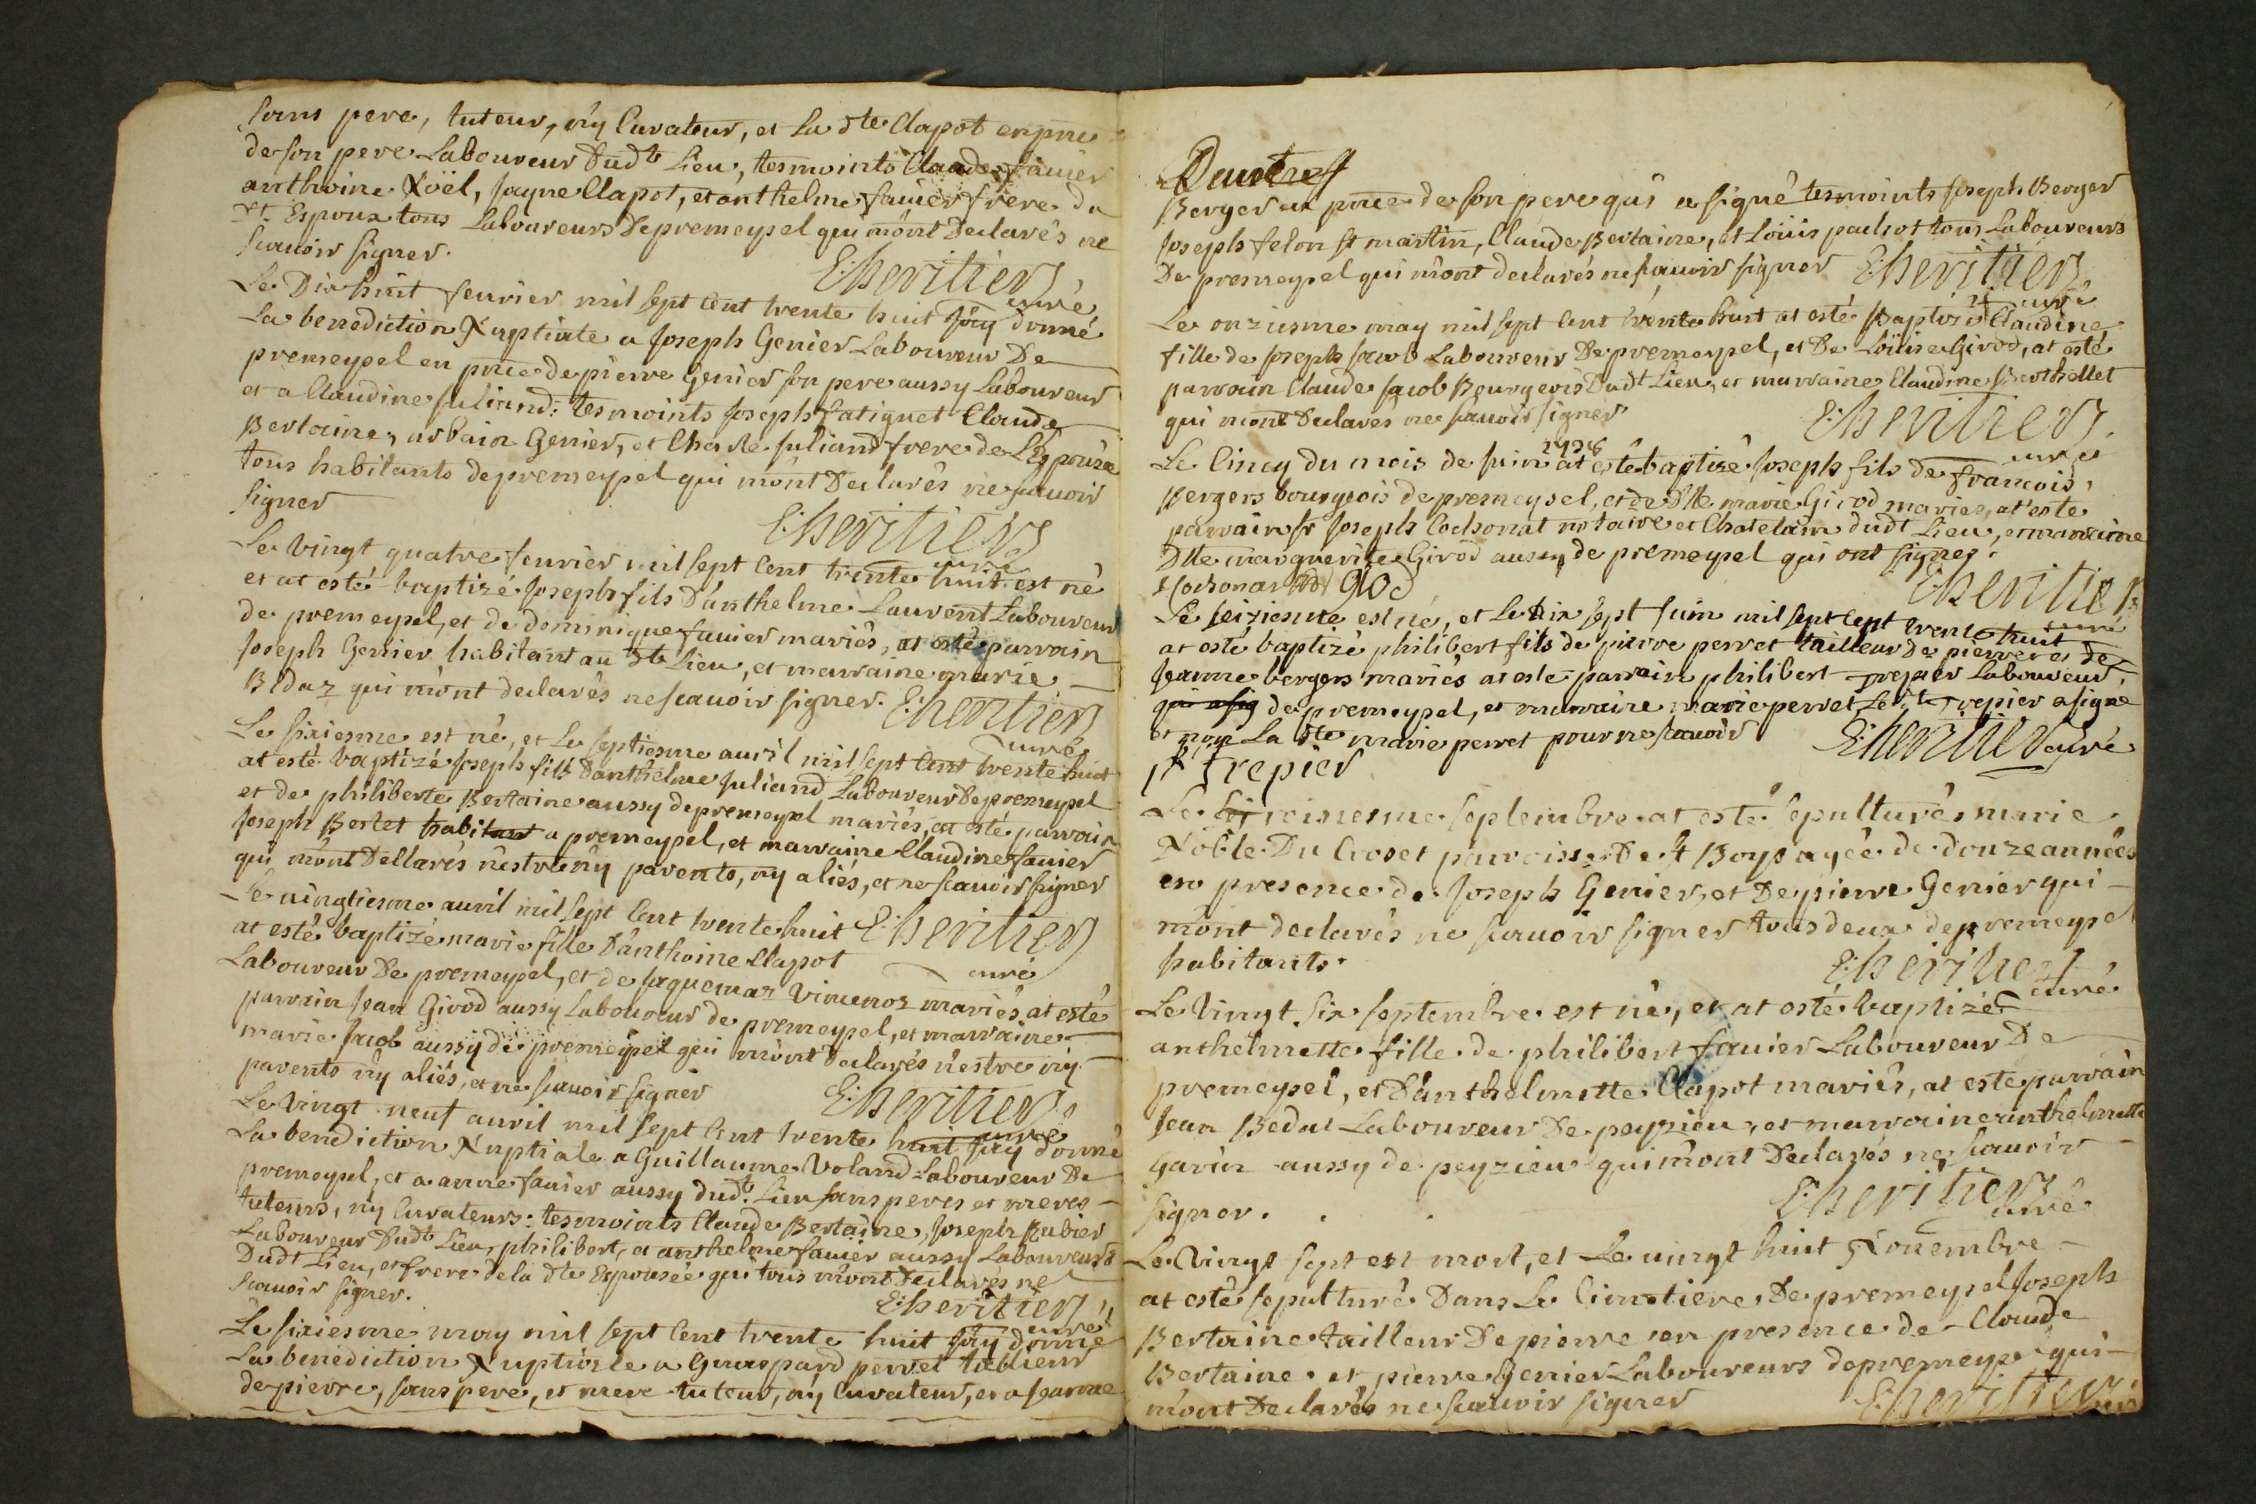 sans pere, tuteur, ny Curateur, et La dte Clapot en pnce
de son pere Laboureur Dudt Lieu, tesmoints Claude fauier
anthoine Noël, Jayme Clapot, et anthelme fauier frere du
dt Espoux tous Laboureurs De premeysel qui m'ont Declarés ne
scauoir signer.
E: heritier curé
Le Dix huit feurier mil sept cent trente huit J'ay donné
La benediction Nuptiale a Joseph Genier Laboureur De
premeysel en pnce de pierre Genier son pere aussy Laboureur
et a Claudine Juliand: tesmoints Joseph fatiguet Claude
Bertaine, urbain Genier, et Charle Juliand frere de L'Epouze
tous habitants de premeysel qui m'ont Declarés ne scauoir
signer
E: heritier curé
Le vingt quatre feurier mil sept Cent trente huit est né
et at esté baptizé Joseph fils D'anthelme Laurent Laboureur
de premeysel, et de dominique fauier mariés, at esté parrain
Joseph Genier habitant au dt Lieu, et marraine marie
Bidaz qui m'ont declarés ne scauoir signer. E: heritier
curé
Le sixiesme est né, et Le septiesme auril mil sept Cent trente huit
at esté baptizé Joseph fils D'anthelme Juliand Laboureur De premeysel
et de philiberte Bertaine aussy de premeysel mariés, at esté parrain
Joseph Bertet habitant a premeysel, et marraine Claudine fauier
qui m'ont Dellarés n'estre ny parents, ny aliés, et ne scauoir signer
Le vingtiesme auril mil sept Cent trente huit E: heritier
at esté baptizé marie fille D'anthoine Clapot curé
Laboureur De premeysel, et de Jaquemaz Vimenoz mariés at esté
parrain Jean Girod aussy Laboureur de premeysel, et marraine
marie Jacob aussy de premeysel qui m'ont Declarés n'estre ny
parents ny aliés, et ne scauoir signer E: heritier
curé
Le vingt neuf auril mil sept Cent trente huit J'ay donné
La benediction Nuptiale a Guillaume Voland Laboureur De
premeysel, et a anne fauier aussy dudt Lieu sans peres et meres
tuteurs, ny Curateurs: tesmoints Claude Bertaine, Joseph Rubier
Laboureur Dudt Lieu, philibert, et anthelme fauier aussy Laboureurs
Dudt Lieu, et frere de la dte Espousée qui tous m'ont Declarés ne
scauoir signer.
E: heritier curé
Le sixiesme may mil sept Cent trente huit J'ay donné
La benediction Nuptiale a Gaaspard perret tailleur
de pierre, sans pere, et mere tuteur, ny Curateur, et a Jeanne
Berger en pnce de son pere qui a signé tesmoints Joseph Berger
Joseph felon st martin, Claude Bertaine, et Loüis pachot tous Laboureurs
De premeysel qui m'ont declarés ne scauoir signer E: heritier
curé
Le onziesme may mil sept Cent trente huit at esté Baptizé Claudine
fille de Joseph Jacob Laboureur De premeysel, et De Loüise Girod, at esté
parrain Claude Jacob Bourgeois Dudt Lieu, et marraine Claudine Berthollet
qui m'ont Declarés ne scauoir signer E: heritier
curé
1738
Le Cincq du mois de Juin at esté baptizé Joseph fils de francois
Bergers bourgeois de premeysel, et de Dlle marie Girod mariés, at esté
parrain sr Joseph Cochonat notaire et Chatelain dudt Lieu, et marraine
Dlle marguerite Girod aussy de premeysel qui ont signés.
E: heritier
curé
Le seiziesme est né, et Le dix sept Juin mil sept Cent trente huit
at esté baptizé philibert fils de pierre perret tailleur de pierre et de
Jeanne bergers mariés at esté parrain philibert trepier Laboureur,
qui asig de premeysel, et marraine marie perret, Le dt trepier a signé
et non La dte marie perret pour ne scauoir E: heritier curé
p trepier
Le septembre at esté sepulturés marie
Noble Du Croset parroisse De st Boys agée de douze années
en presence de Joseph Genier, et De pierre Genier qui
m'ont declarés ne scauoir signer tous deux de premeysel
habitants.
E: heritier
curé
Le Vingt six septembre est né, et at esté baptizé
anthelmette fille de philibert fauier Laboureur De
premeysel, et D'anthelmette Clapot mariés, at esté parrain
Jean Bedat Laboureur De peyzieu, et marraine anthelmette
Garin aussy de peyzieu qui m'ont Declarés ne scauoir
signer.
E: heritier
curé
Le Vingt sept est mort, et Le vingt huit Nouembre
at esté sepulturé Dans Le Cimetiere De premeysel Joseph
Bertaine tailleur De pierre en presence de Claude
Bertaine et pierre Genier Laboureurs de premeysel qui
m'ont Declarés ne scauoir signer E: heritier curé